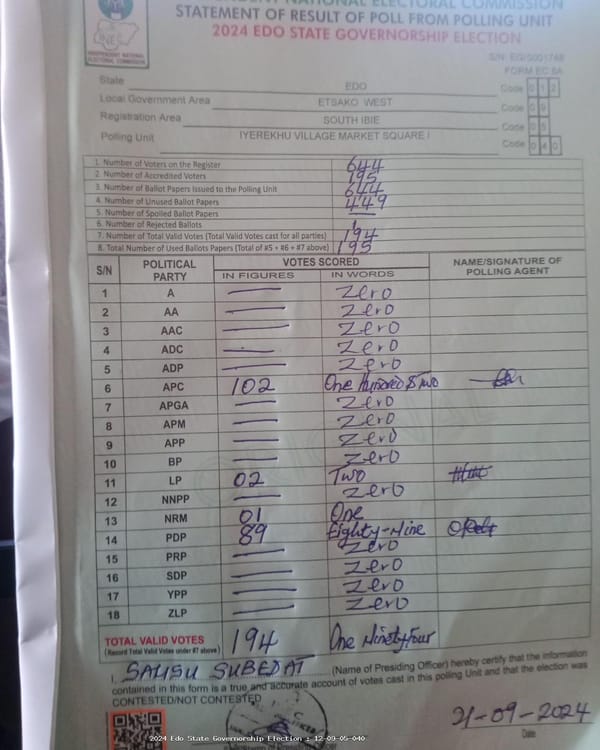 INDEPENDENT NATIONAL ELECTORAL COMMISSION
STATEMENT OF RESULT OF POLL FROM POLLING UNIT
2024 EDO STATE GOVERNORSHIP ELECTION
INEC
INDEPENDENT NATIONAL ELECTORAL COMMISSION
FORM EC 8A
State EDO Code 0 1 2
Local Government Area ETSAKO WEST Code 0 9
Registration Area SOUTH IBIE Code 0 5
Polling Unit IYEREKHU VILLAGE MARKET SQUARE I Code 0 4 0
1. Number of Voters on the Register 644
2. Number of Accredited Voters 195
3. Number of Ballot Papers Issued to the Polling Unit 644
4. Number of Unused Ballot Papers 449
5. Number of Spoiled Ballot Papers —
6. Number of Rejected Ballots 1
7. Number of Total Valid Votes (Total Valid Votes cast for all parties) 194
8. Total Number of Used Ballots Papers (Total of #5 + #6 + #7 above) 195
S/N POLITICAL PARTY VOTES SCORED NAME/SIGNATURE OF POLLING AGENT
IN FIGURES IN WORDS
1 A — Zero
2 AA — Zero
3 AAC — Zero
4 ADC — Zero
5 ADP — Zero
6 APC 102 One Hundred & Two
7 APGA — Zero
8 APM — Zero
9 APP — Zero
10 BP — Zero
11 LP 02 Two
12 NNPP — Zero
13 NRM 01 One
14 PDP 89 Eighty-Nine
15 PRP — Zero
16 SDP — Zero
17 YPP — Zero
18 ZLP — Zero
TOTAL VALID VOTES 194 One Ninetyfour
(Record Total Valid Votes under #7 above)
I, SALISU SUBEDAT (Name of Presiding Officer) hereby certify that the information
contained in this form is a true and accurate account of votes cast in this polling Unit and that the election was
CONTESTED/NOT CONTESTED
21-09-2024
Date
2024 Edo State Governorship Election : 12-09-05-040